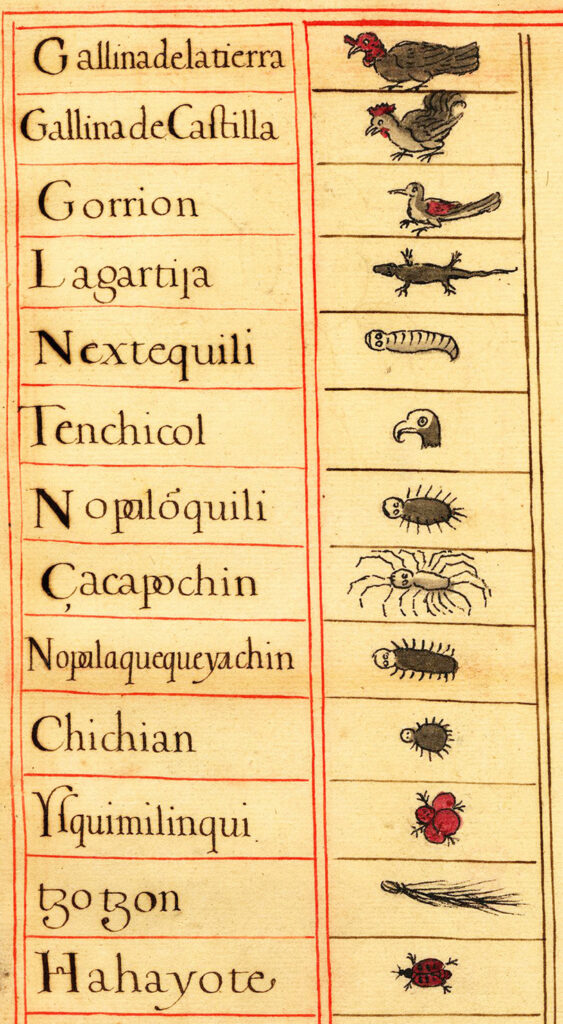 Gallina de la tierra
Gallina de Castilla
Gorrion
Lagartija
Nextequili
Tenchicol
Nopalóquili
Çacapochin
Nopalaquequeyachin
Chichian
Ysquimilinqui
tzotzon
Hahayote